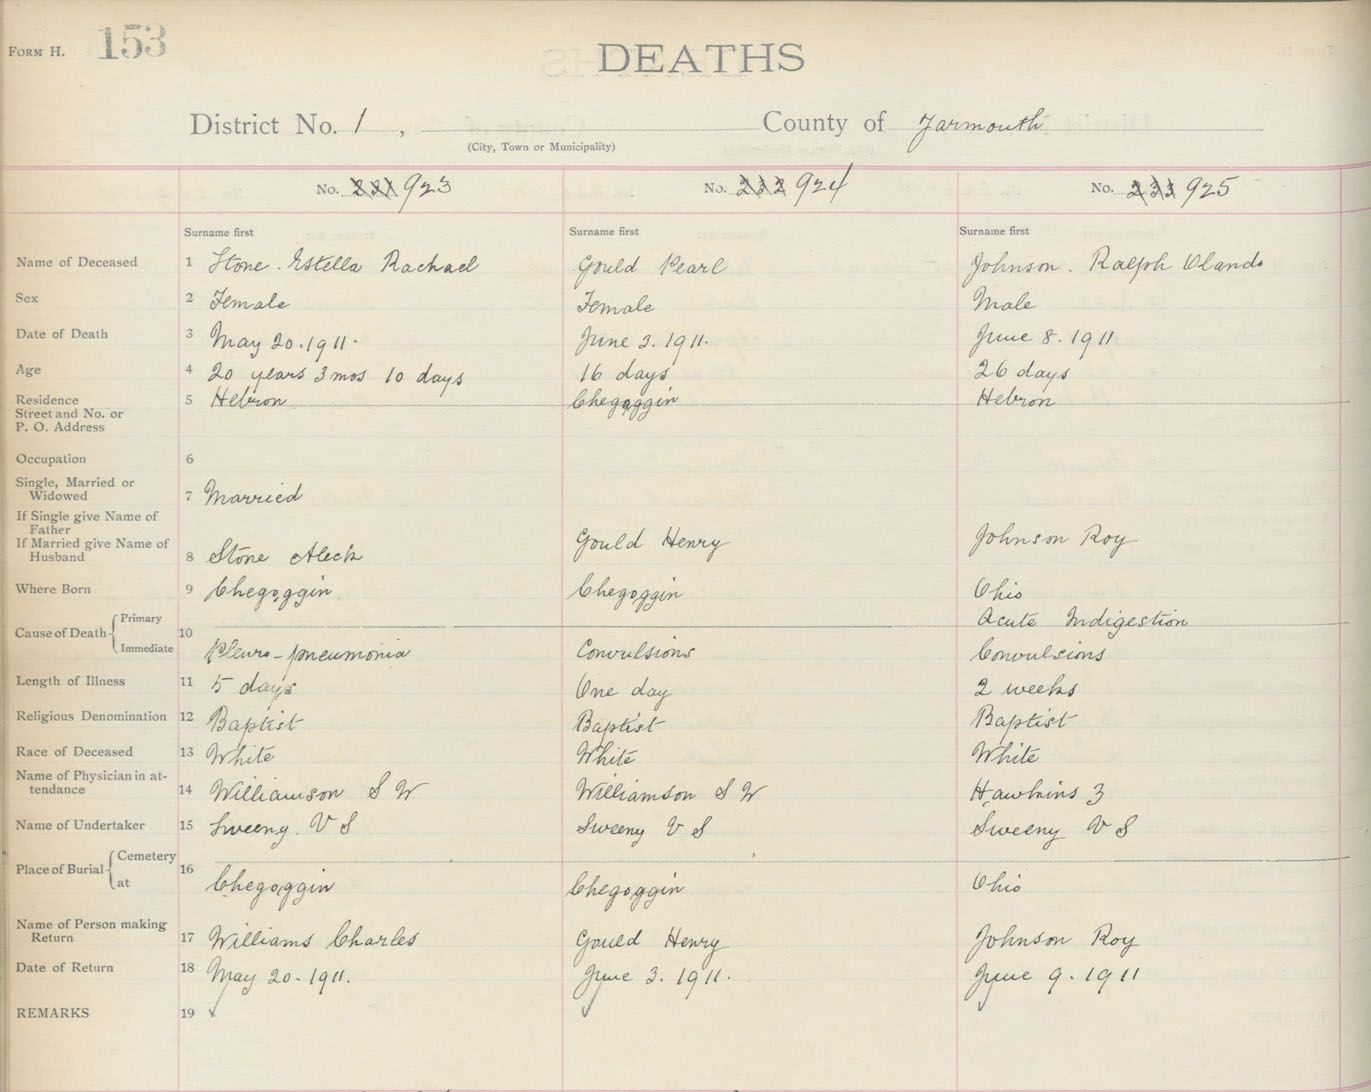 FORM H. 153
DEATHS
District No. 1 , County of Yarmouth
(City, Town or Municipality)
No. 231 923 No. 232 924 No. 233 925
Surname first Surname first Surname first
Name of Deceased 1 Stone. Estella Rachael Gould Pearl Johnson. Ralph Olando
Sex 2 Female Female Male
Date of Death 3 May 20. 1911. June 3. 1911. June 8. 1911
Age 4 20 years 3 mos 10 days 16 days 26 days
Residence 5 Hebron Chegoggin Hebron
Street and No. or
P. O. Address
Occupation 6
Single, Married or
Widowed 7 Married
If Single give Name of
Father
If Married give Name of Gould Henry Johnson Roy
Husband 8 Stone Aleck
Where Born 9 Chegoggin Chegoggin Ohio
Primary Acute Indigestion
Cause of Death 10
Immediate Pleuro-pneumonia Convulsions Convulsions
Length of Illness 11 5 days One day 2 weeks
Religious Denomination 12 Baptist Baptist Baptist
Race of Deceased 13 White White White
Name of Physician in at-
tendance 14 Williamson S W Williamson S W Hawkins Z
Name of Undertaker 15 Sweeny. V S Sweeny V S Sweeny V S
Cemetery
Place of Burial 16
at Chegoggin Chegoggin Ohio
Name of Person making
Return 17 Williams Charles Gould Henry Johnson Roy
Date of Return 18 May 20. 1911. June 3. 1911. June 9. 1911
REMARKS 19